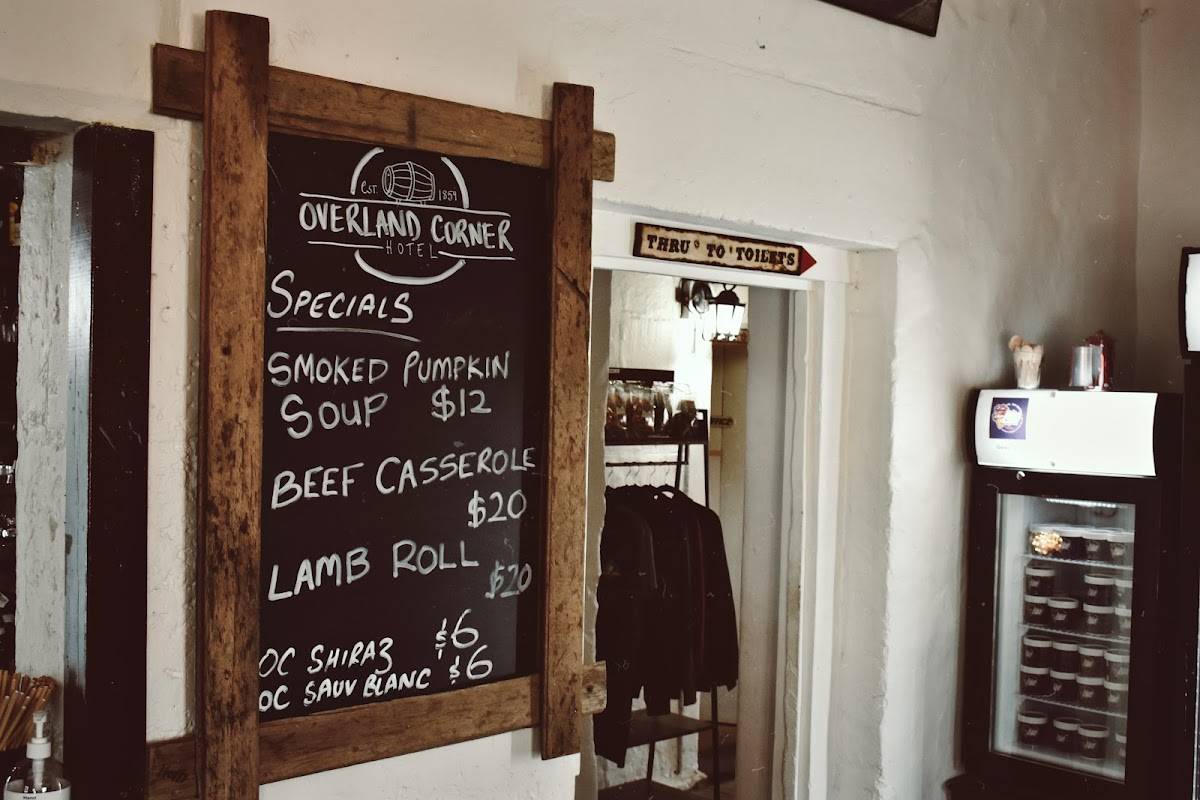 EST. 1859
OVERLAND CORNER
HOTEL
SPECIALS
SMOKED PUMPKIN
SOUP $12
BEEF CASSEROLE
$20
LAMB ROLL
$20
OC SHIRAZ $6
OC SAUV BLANC $6
THRU' TO TOILETS